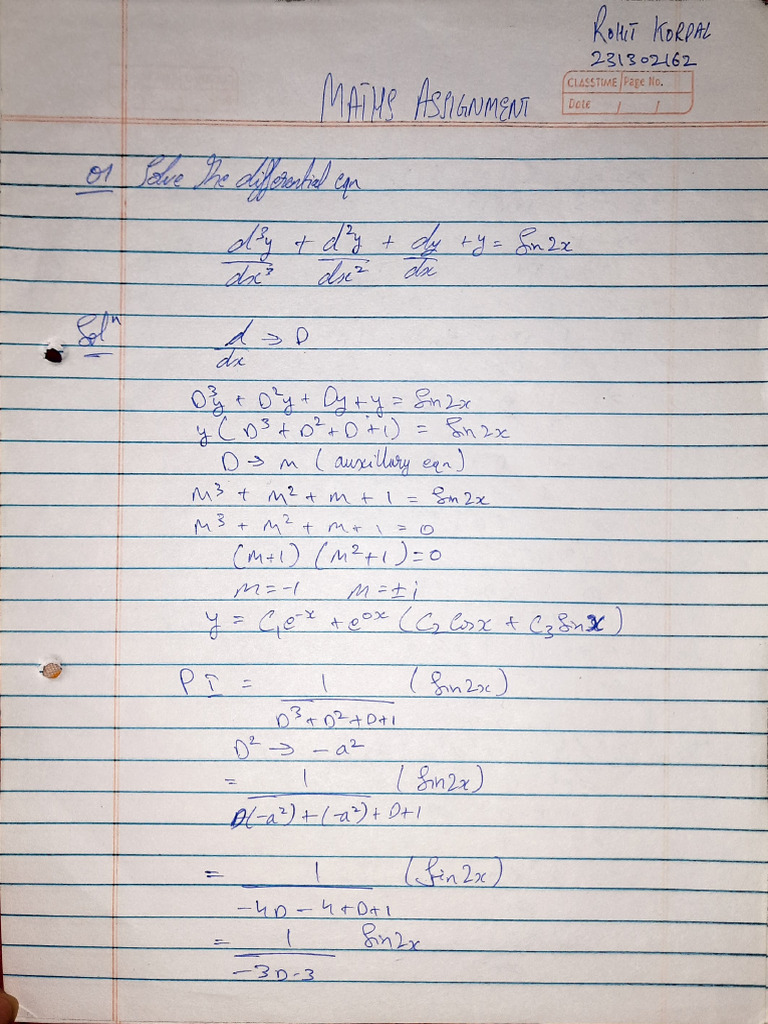 ROHIT KORPAL
231302162
CLASSTIME Page No.
Date / /
MATHS ASSIGNMENT
Q1 Solve the differential eqn
d³y/dx³ + d²y/dx² + dy/dx + y = Sin2x
Solⁿ
d/dx → D
D³y + D²y + Dy + y = Sin2x
y ( D³ + D² + D + 1) = Sin2x
D → m ( auxillary eqn )
m³ + m² + m + 1 = Sin2x
m³ + m² + m + 1 = 0
(m+1) (m²+1) = 0
m = -1 m = ± i
y = C₁e⁻ˣ + e⁰ˣ ( C₂ Cosx + C₃ Sinx )
P I = 1/(D³ + D² + D+1) (Sin2x)
D² → - a²
= 1/(D(-a²) + (-a²) + D+1) (Sin2x)
= 1/(-4D - 4 + D+1) (Sin2x)
= 1/(-3D-3) Sin2x